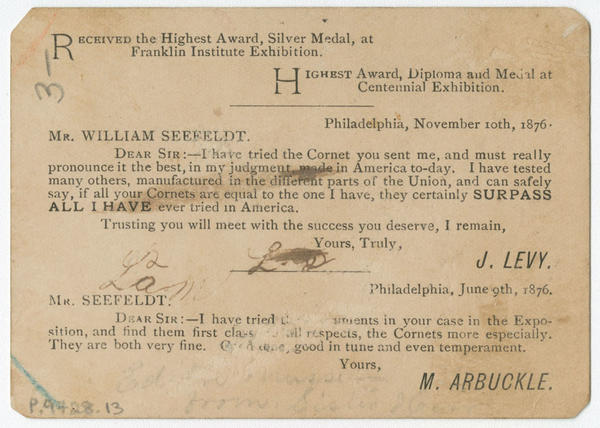 RECEIVED the Highest Award, Silver Medal, at
Franklin Institute Exhibition.
HIGHEST Award, Diploma and Medal at
Centennial Exhibition.
3-
Philadelphia, November 10th, 1876.
MR. WILLIAM SEEFELDT.
DEAR SIR:—I have tried the Cornet you sent me, and must really
pronounce it the best, in my judgment, made in America to-day. I have tested
many others, manufactured in the different parts of the Union, and can safely
say, if all your Cornets are equal to the one I have, they certainly SURPASS
ALL I HAVE ever tried in America.
Trusting you will meet with the success you deserve, I remain,
Yours, Truly,
J. LEVY.
Philadelphia, June 9th, 1876.
MR. SEEFELDT.
DEAR SIR:—I have tried in your case in the Expo-
sition, and find them first class all respects, the Cornets more especially.
They are both very fine. Good tone, good in tune and even temperament.
Yours,
M. ARBUCKLE.
from Sister
P.9428.13